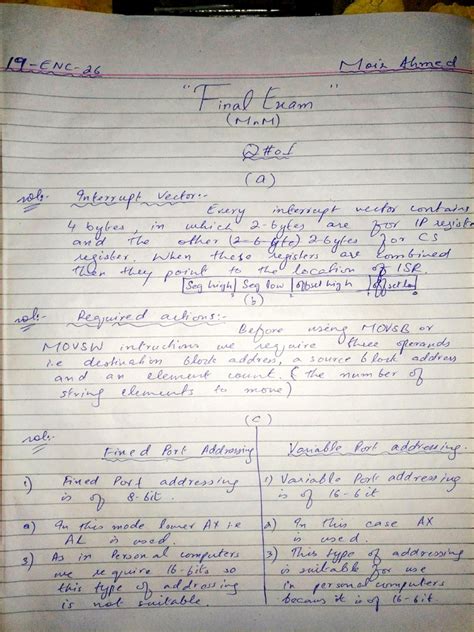 19-ENC-26 Moiz Ahmed
"Final Exam"
(MnM)
Q#01
(a)
sol:- Interrupt Vector:-
Every interrupt vector contains
4 bytes, in which 2-bytes are for IP register
and the other (2-byte) 2-bytes for CS
register. When these registers are combined
then they point to the location of ISR.
Seg high | Seg low | offset high | offset low
(b)
sol:- Required actions:-
Before using MOVSB or
MOVSW intructions we require three operands
i.e destination block address, a source block address
and an element count. (the number of
string elements to move)
(c)
sol:-
Fixed Port Addressing Variable Port addressing.
1) Fixed Port addressing 1) Variable Port addressing
is of 8-bit. is of 16-bit
2) In this mode lower AX i.e 2) In this case AX
AL is used. is used.
3) As in Personal computers 3) This type of addressing
we require 16-bits so is suitable for use
this type of addressing in personal computers
is not suitable. becaus it is of 16-bit